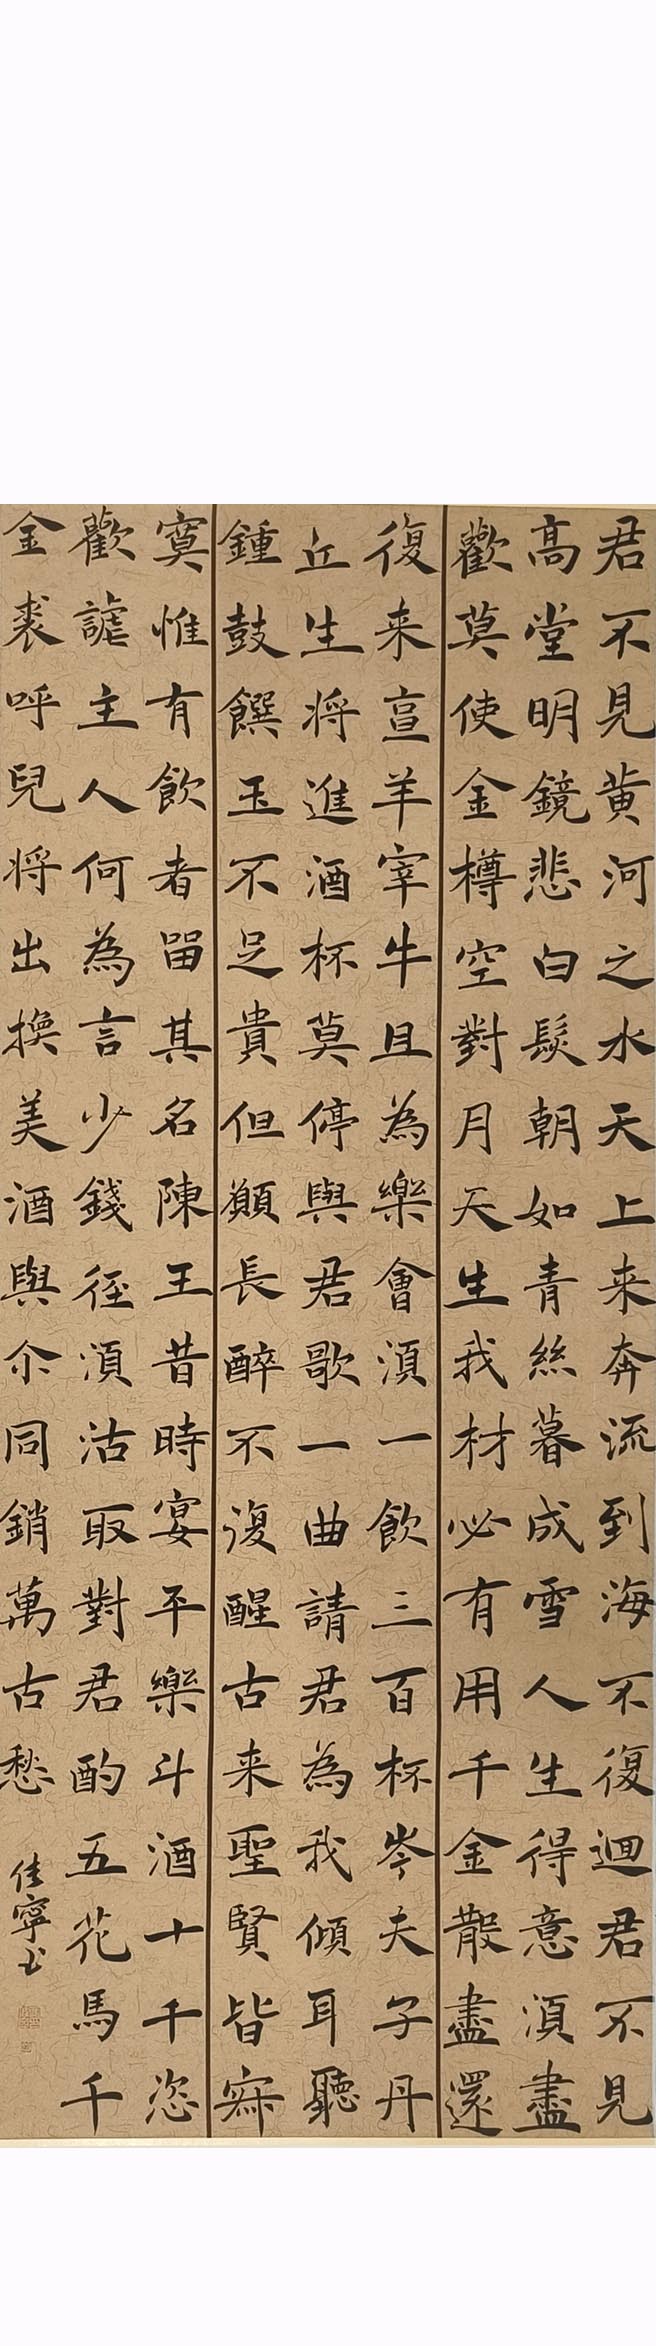 君不見黃河之水天上来奔流到海不復迴君不見
高堂明鏡悲白髮朝如青絲暮成雪人生得意須盡
歡莫使金樽空對月天生我材必有用千金散盡還
復来亯羊宰牛且為樂會須一飲三百杯岑夫子丹
丘生将進酒杯莫停與君歌一曲請君為我傾耳聽
鍾鼓饌玉不足貴但願長醉不復醒古来聖賢皆寂
寞惟有飲者留其名陳王昔時宴平樂斗酒十千恣
歡謔主人何為言少錢徑須沽取對君酌五花馬千
金裘呼兒将出換美酒與尒同銷萬古愁
佳寧书